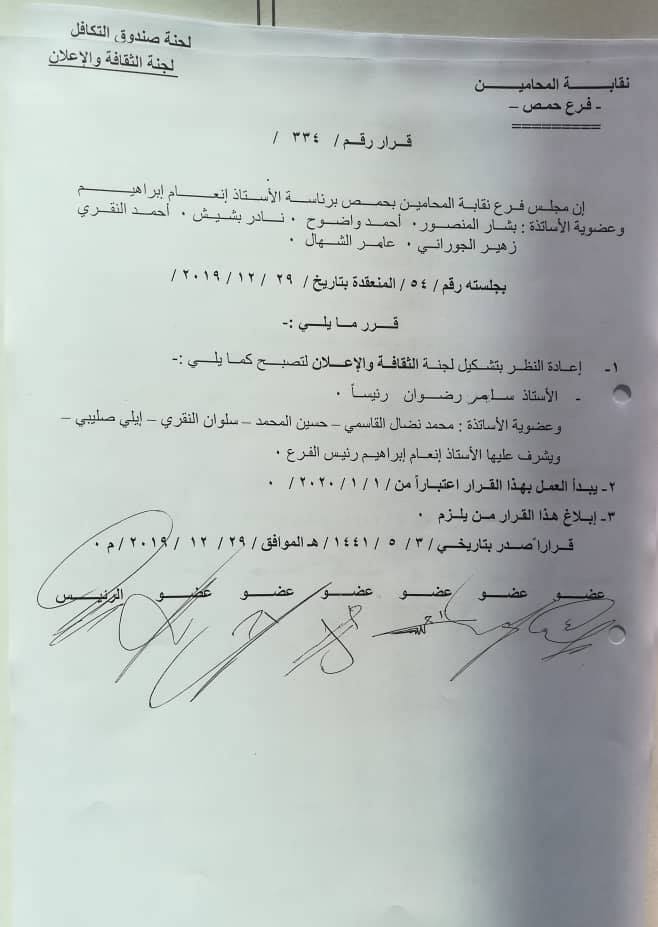 لجنة صندوق التكافل
لجنة الثقافة والإعلان
نقابـــة المحاميـــن
- فـرع حمـص –
قـرار رقـم / ٣٣٤ /
إن مجلس فـرع نقابـة المحاميـن بحمـص برئاسـة الأستـاذ إنعـام إبراهيـم
وعضوية الأساتذة : بشار المنصـور٠ أحمـد واضـوح ٠ نـادر بشيـش ٠ أحمـد النقـري
زهيـر الجورانـي ٠ عامـر الشهـال ٠
بجلسته رقم / ٥٤ / المنعقدة بتاريخ / ٢٩ / ١٢ / ٢٠١٩ /
قــرر مـا يلـي :-
١- إعـادة النظـر بتشكيـل لجنـة الثقافـة والإعـلان لتصبـح كمـا يلـي :-
- الأستاذ سامر رضـوان رئيسـاً ٠
وعضوية الأساتذة : محمد نضال القاسمي – حسين المحمد – سلوان النقري – إيلي صليبي –
ويشرف عليها الأستاذ إنعـام إبراهيـم رئيس الفـرع ٠
٢- يبـدأ العمـل بهـذا القـرار اعتبـاراً مـن / ١ / ١ / ٢٠٢٠ / ٠
٣- إبـلاغ هـذا القـرار مـن يلـزم ٠
قـراراً صـدر بتاريخـي / ٣ / ٥ / ١٤٤١ / هـ الموافـق / ٢٩ / ١٢ / ٢٠١٩ / م ٠
عضـو عضـو عضـو عضـو عضـو عضـو الرئيـس